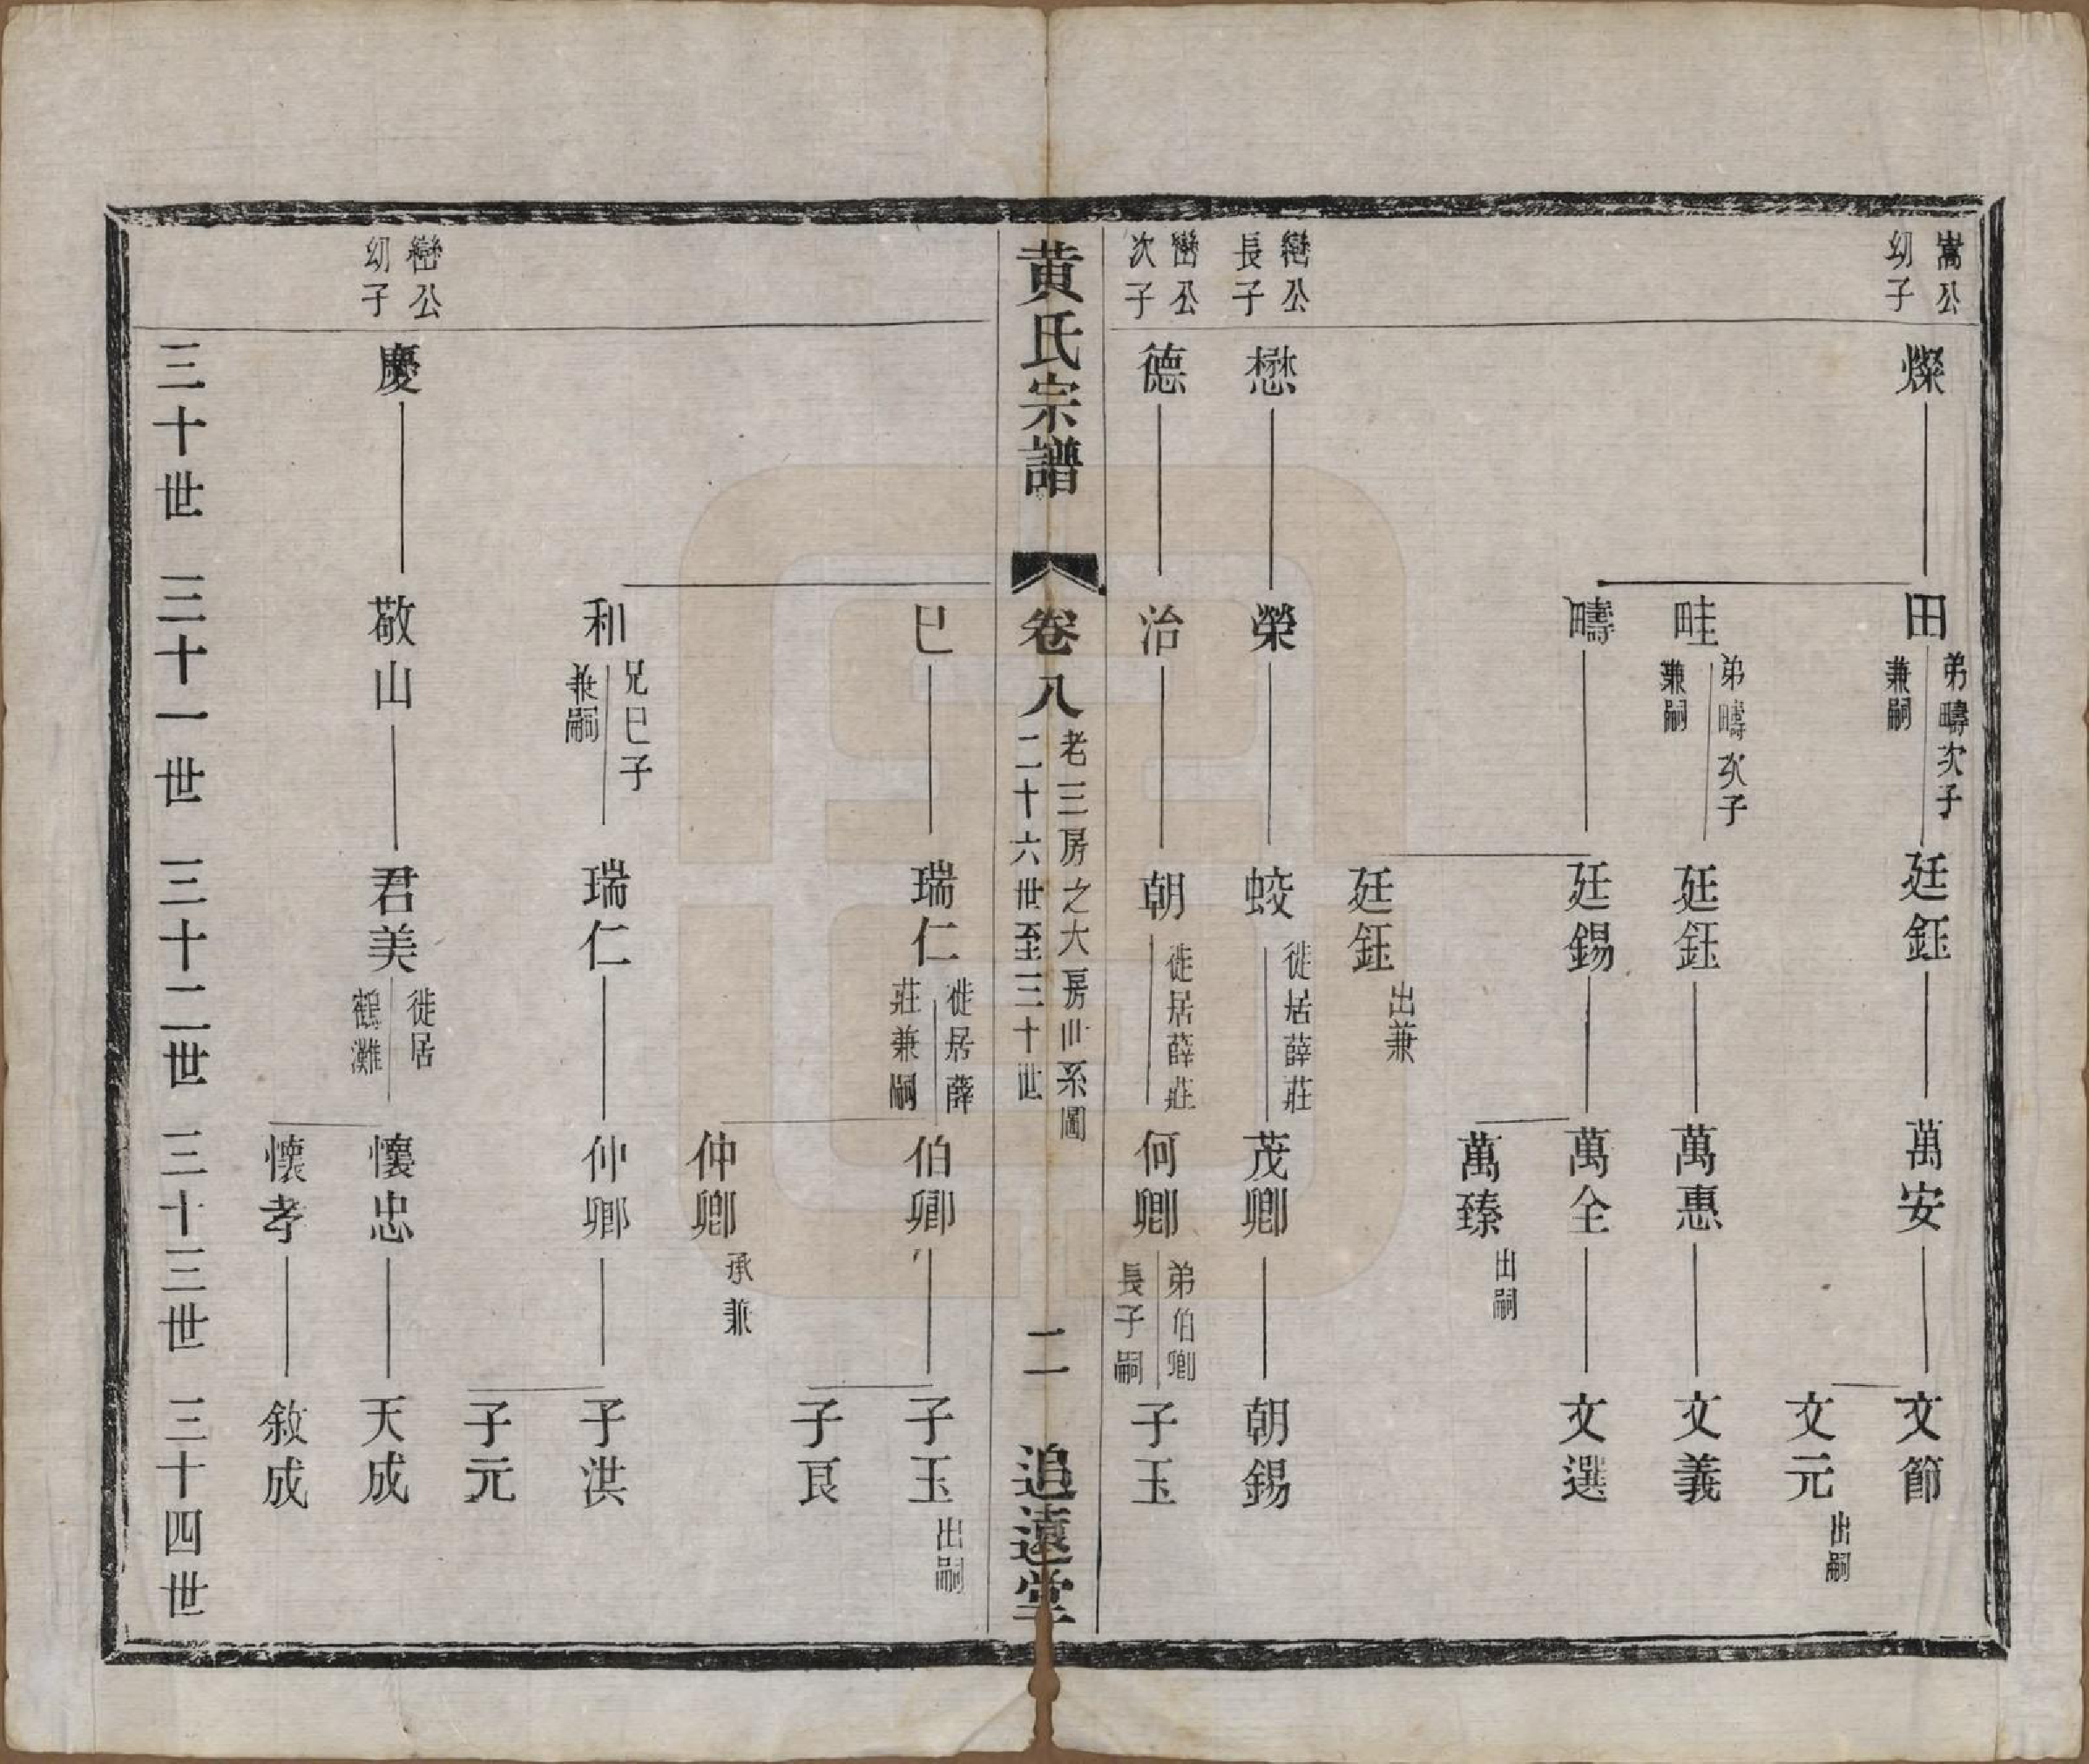 嵩公
幼子
燦
田
弟疇次子
兼嗣
廷鈺
萬安
文節
文元
出嗣
畦
弟疇次子
兼嗣
廷鈺
萬惠
文義
疇
廷錫
萬全
文選
萬臻
出嗣
廷鈺
出兼
巒公
長子
懋
榮
蛟
徙居薛莊
茂卿
朝錫
巒公
次子
德
治
朝
徙居薛莊
何卿
弟伯卿
長子嗣
子玉
黃氏宗譜
卷八
老三房之大房世系圖
二十六世至三十世
二
追遠堂
巳
瑞仁
徙居薛
莊兼嗣
伯卿
子玉
出嗣
子良
仲卿
承兼
和
兄巳子
兼嗣
瑞仁
仲卿
子洪
子元
巒公
幼子
慶
敬山
君美
徙居
鶴灘
懷忠
天成
懷孝
敘成
三十世
三十一世
三十二世
三十三世
三十四世